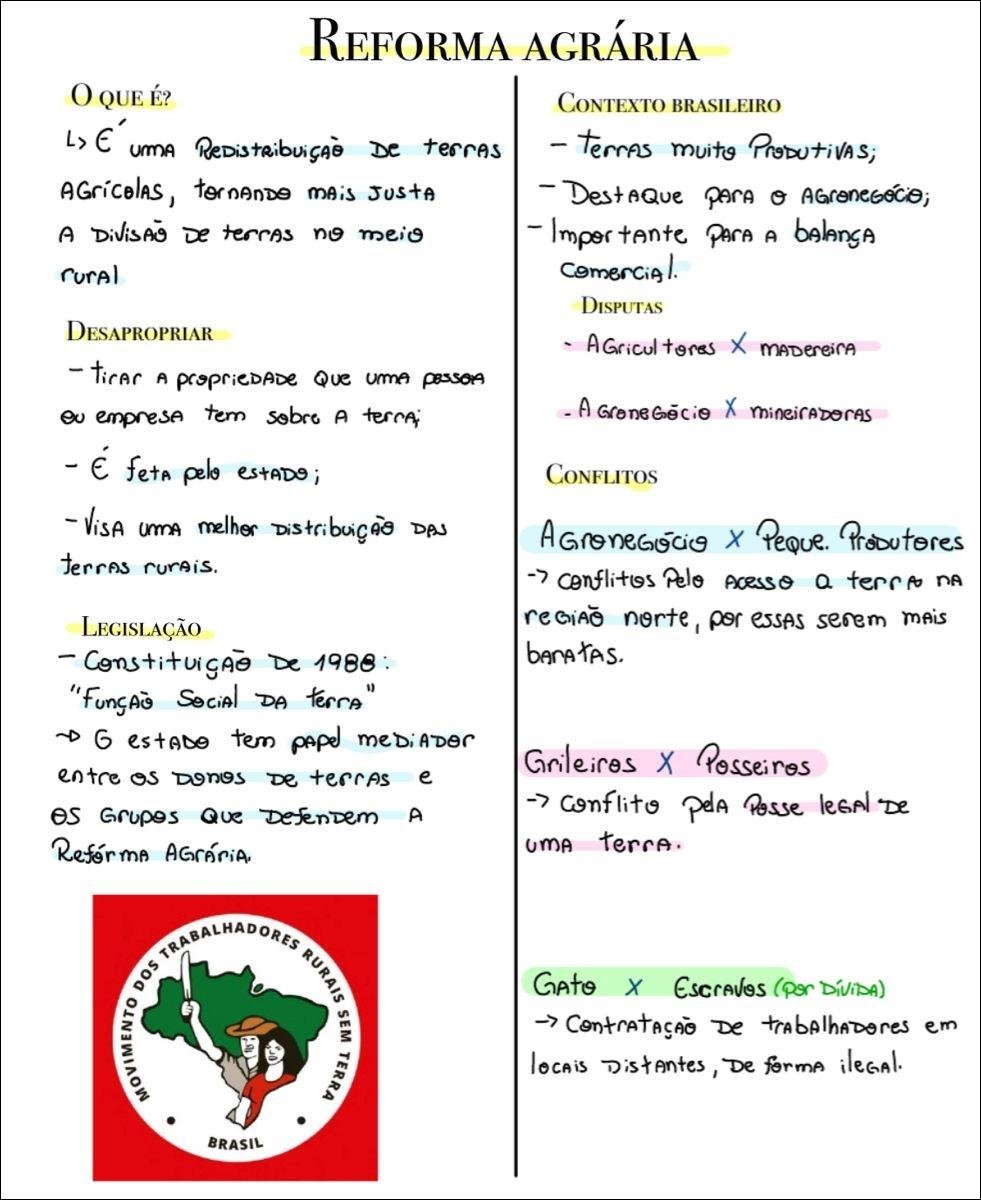 REFORMA AGRÁRIA
O QUE É?
↳ É uma Redistribuição de terras
agrícolas, tornando mais justa
a divisão de terras no meio
rural
DESAPROPRIAR
- tirar a propriedade que uma pessoa
ou empresa tem sobre a terra;
- É feta pelo estado;
- Visa uma melhor distribuição das
terras rurais.
LEGISLAÇÃO
- Constituição de 1988:
"Função Social da terra"
→ O estado tem papel mediador
entre os donos de terras e
os grupos que defendem a
Refórma Agrária.
MOVIMENTO DOS TRABALHADORES RURAIS SEM TERRA
BRASIL
CONTEXTO BRASILEIRO
- Terras muito Produtivas;
- Destaque para o agronegócio;
- Importante para a balança
comercial.
DISPUTAS
- Agricultores X madereira
- Agronegócio X mineiradoras
CONFLITOS
Agronegócio X Peque. Produtores
→ conflitos pelo acesso a terra na
região norte, por essas serem mais
baratas.
Grileiros X Posseiros
→ conflito pela posse legal de
uma terra.
Gato X Escravos (por dívida)
→ Contratação de trabalhadores em
locais distantes, de forma ilegal.